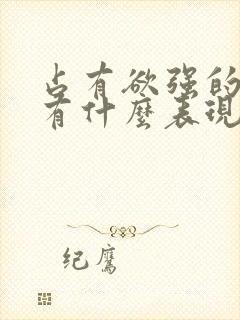 占有欲强的
有什麼表现
纪鹰